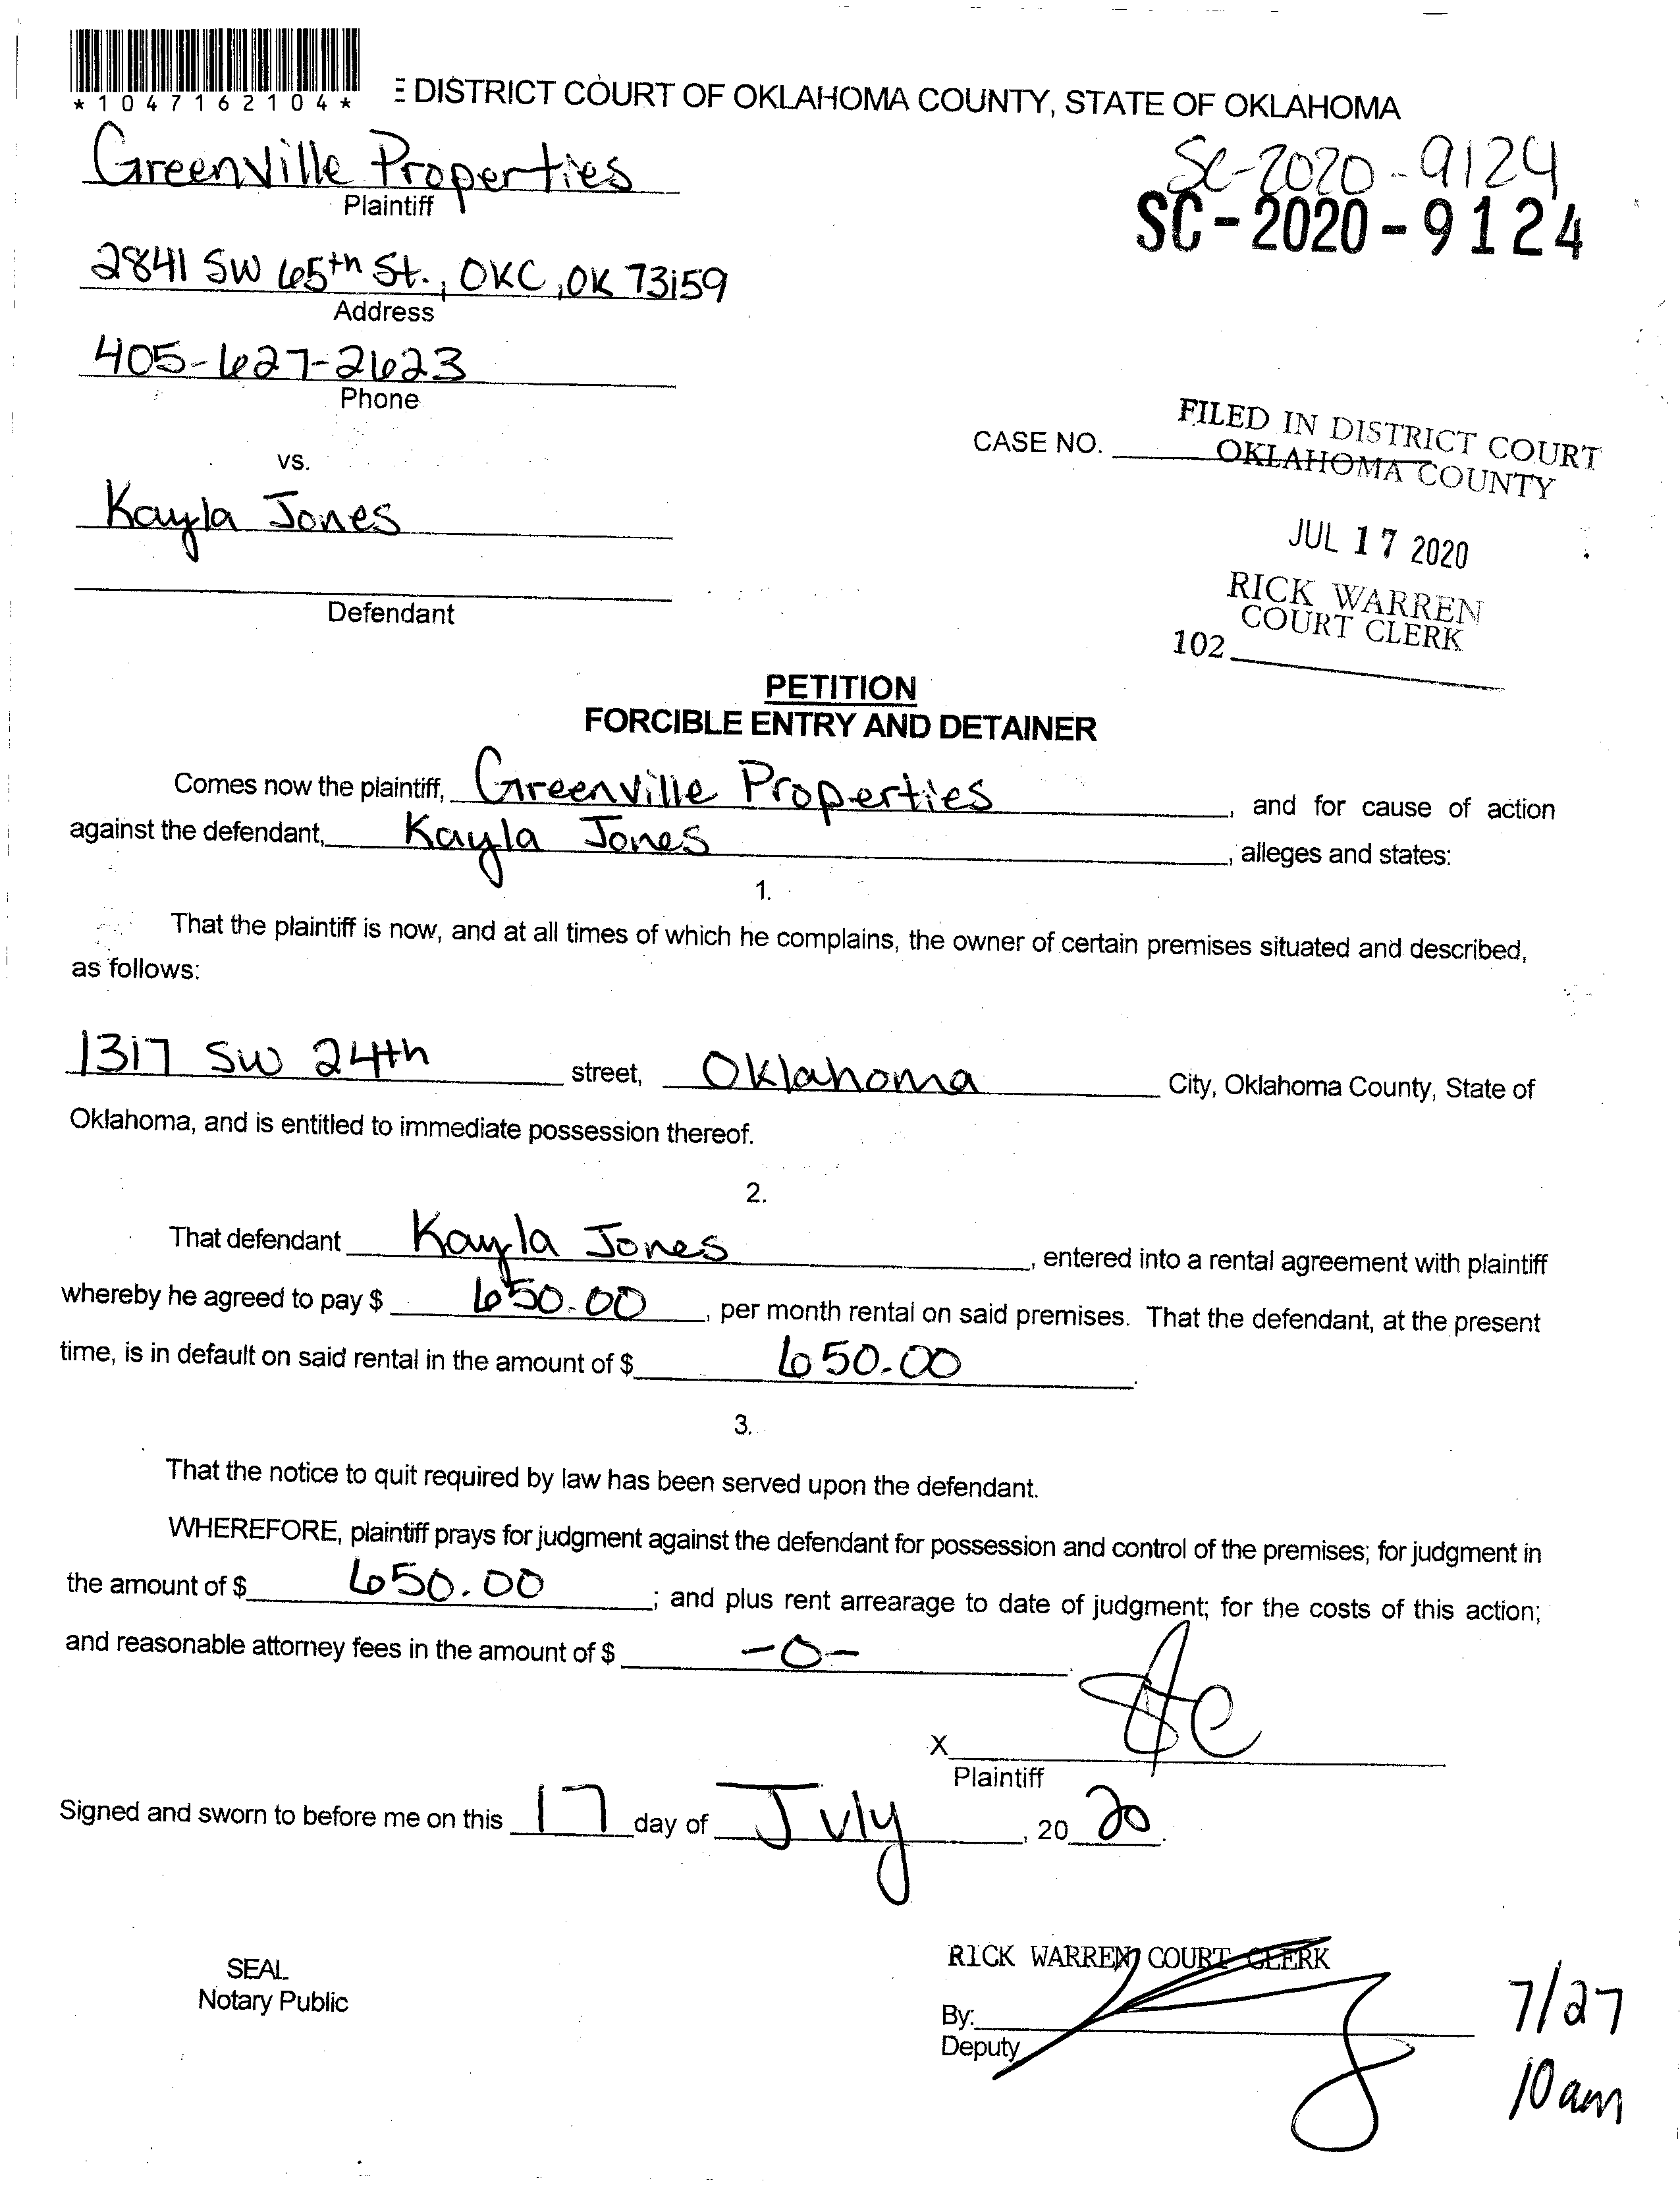 *1047162104*
E DISTRICT COURT OF OKLAHOMA COUNTY, STATE OF OKLAHOMA
Greenville Properties
Plaintiff
SC-2020-9124
SC-2020-9124
2841 SW 65th St., OKC, OK 73159
Address
405-627-2623
Phone
vs.
CASE NO.
FILED IN DISTRICT COURT
OKLAHOMA COUNTY
Kayla Jones
JUL 17 2020
Defendant
RICK WARREN
COURT CLERK
102
PETITION
FORCIBLE ENTRY AND DETAINER
Comes now the plaintiff, Greenville Properties, and for cause of action
against the defendant, Kayla Jones, alleges and states:
1.
That the plaintiff is now, and at all times of which he complains, the owner of certain premises situated and described,
as follows:
1317 SW 24th street, Oklahoma City, Oklahoma County, State of
Oklahoma, and is entitled to immediate possession thereof.
2.
That defendant Kayla Jones, entered into a rental agreement with plaintiff
whereby he agreed to pay $ 650.00, per month rental on said premises. That the defendant, at the present
time, is in default on said rental in the amount of $ 650.00.
3.
That the notice to quit required by law has been served upon the defendant.
WHEREFORE, plaintiff prays for judgment against the defendant for possession and control of the premises; for judgment in
the amount of $ 650.00; and plus rent arrearage to date of judgment; for the costs of this action;
and reasonable attorney fees in the amount of $ -0-.
X
Plaintiff
Signed and sworn to before me on this 17 day of July, 2020.
SEAL
Notary Public
RICK WARREN, COURT CLERK
By:
Deputy
7/27
10am